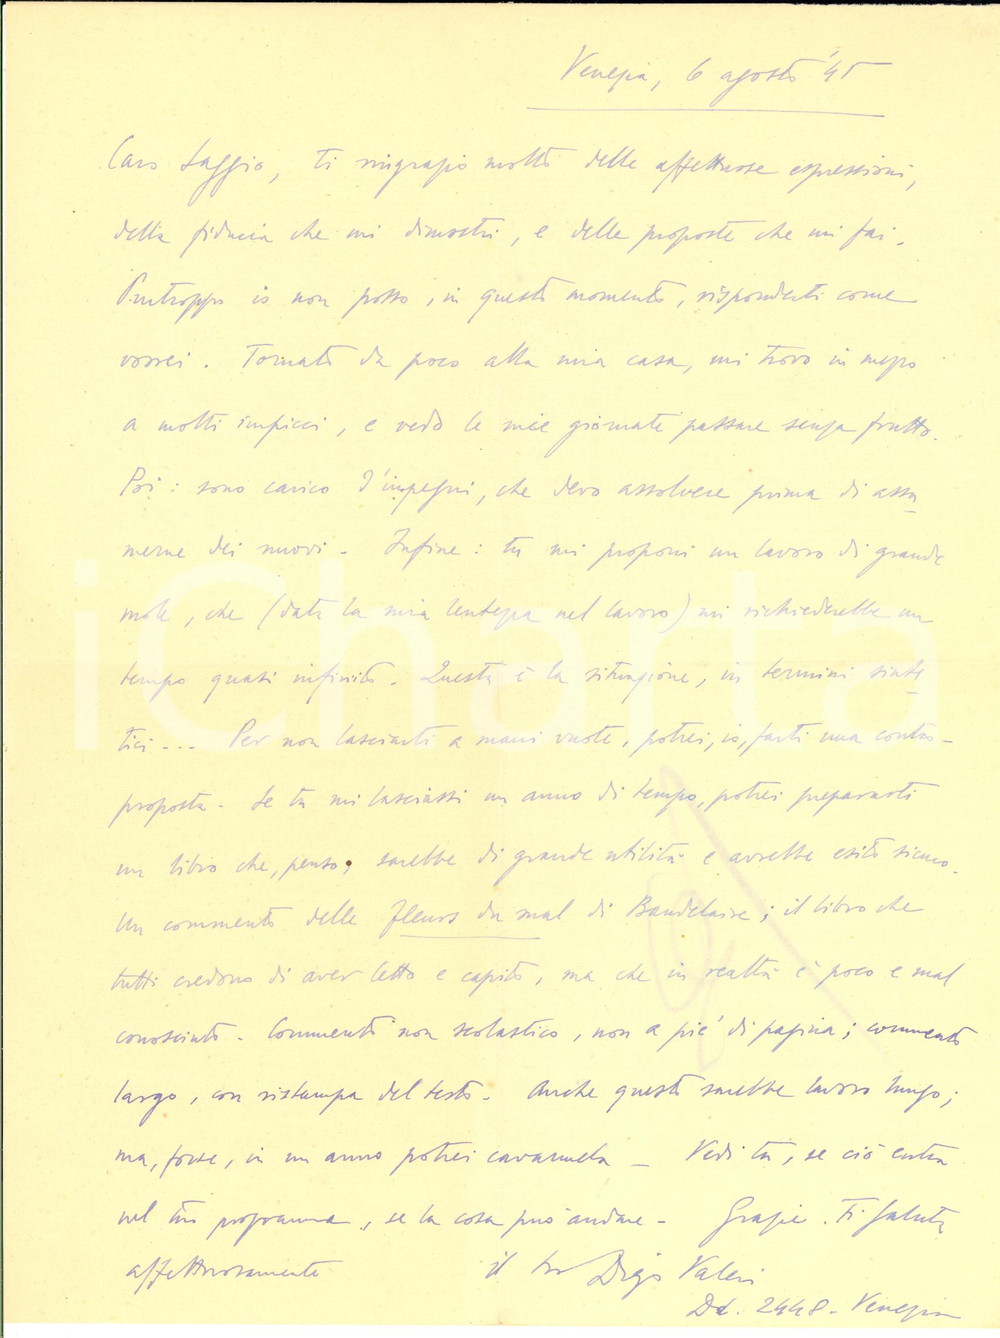 Venezia, 6 agosto '45
Caro Saggio, ti ringrazio molto delle affettuose espressioni,
della fiducia che mi dimostri, e delle proposte che mi fai.
Purtroppo io non posso, in questo momento, risponderti come
vorrei. Tornato da poco alla mia casa, mi trovo in mezzo
a molti impicci, e vedo le mie giornate passare senza frutto.
Poi: sono carico d'impegni, che devo assolvere prima di assu
merne dei nuovi. Infine: tu mi proponi un lavoro di grande
mole, che (data la mia lentezza nel lavoro) mi richiederebbe un
tempo quasi infinito. Questa è la situazione, in termini sinte
tici... Per non lasciarti a mani vuote, potrei, io, farti una contro-
proposta. Se tu mi lasciassi un anno di tempo, potrei prepararti
un libro che, penso, sarebbe di grande utilità e avrebbe esito sicuro.
Un commento delle Fleurs du mal di Baudelaire; il libro che
tutti credono di aver letto e capito, ma che in realtà è poco e mal
conosciuto. Commento non scolastico, non a pie' di pagina; commento
largo, con ristampa del testo. Anche questo sarebbe lavoro lungo;
ma, forse, in un anno potrei cavarmela. Vedi tu, se ciò entra
nel tuo programma, se la cosa può andare. Grazie. Ti saluta
affettuosamente il tuo Diego Valeri
Dd. 2448. Venezia
iCharta